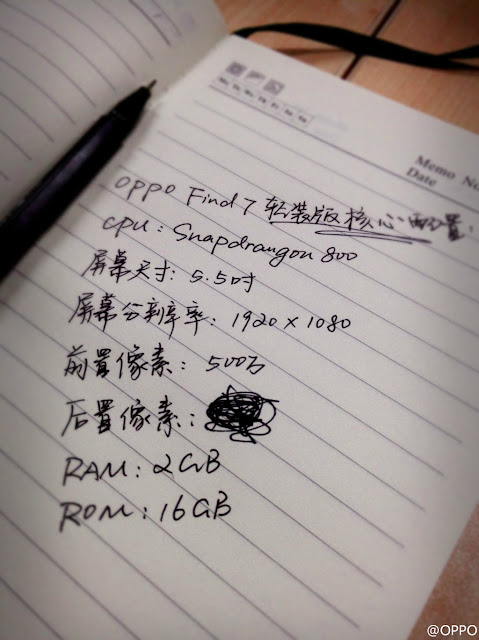 Mo Tu We Th Fr Sa Su
Memo No
Date
OPPO Find 7 轻装版核心配置:
CPU: Snapdraugon 800
屏幕尺寸: 5.5吋
屏幕分辨率: 1920 x 1080
前置像素: 500万
后置像素:
RAM: 2GB
ROM: 16GB
@OPPO